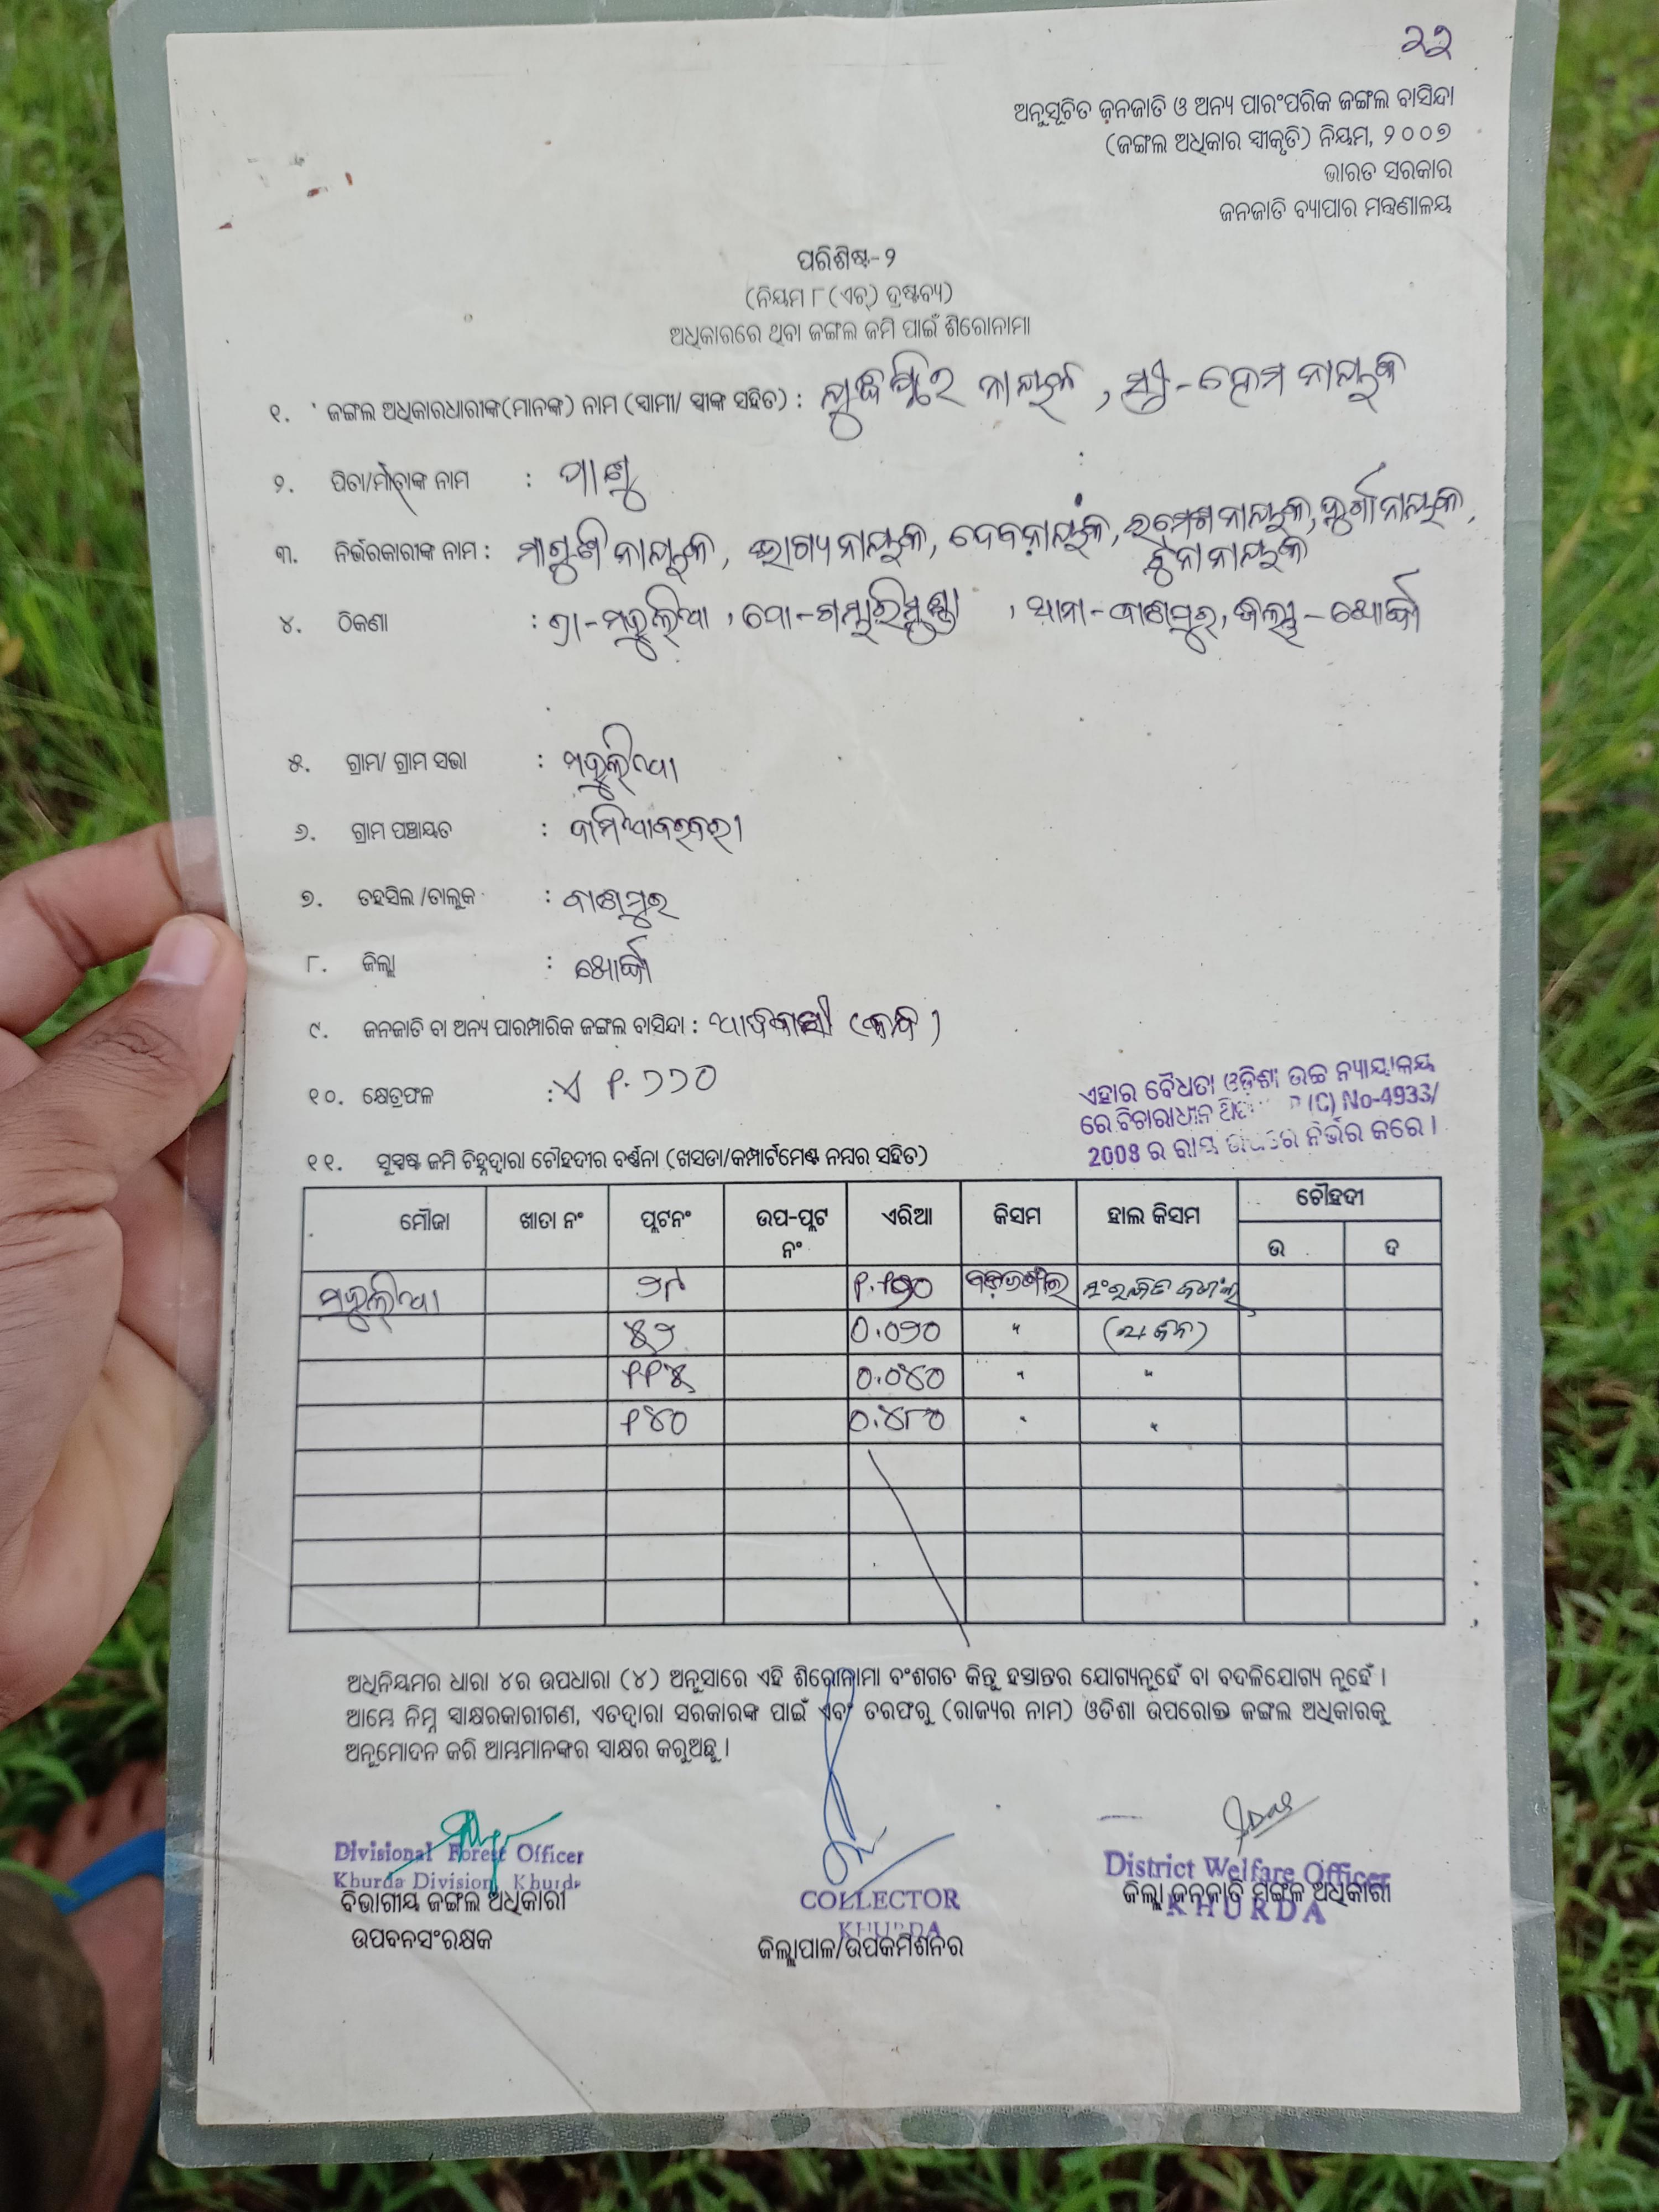 ୨୨
ଅନୁସୂଚିତ ଜନଜାତି ଓ ଅନ୍ୟ ପାରଂପରିକ ଜଙ୍ଗଲ ବାସିନ୍ଦା
(ଜଙ୍ଗଲ ଅଧିକାର ସ୍ୱୀକୃତି) ନିୟମ, ୨୦୦୭
ଭାରତ ସରକାର
ଜନଜାତି ବ୍ୟାପାର ମନ୍ତ୍ରଣାଳୟ
ପରିଶିଷ୍ଟ-୨
(ନିୟମ ୮(ଏଚ୍) ଦ୍ରଷ୍ଟବ୍ୟ)
ଅଧିକାରରେ ଥିବା ଜଙ୍ଗଲ ଜମି ପାଇଁ ଶିରୋନାମା
୧. ଜଙ୍ଗଲ ଅଧିକାରଧାରୀଙ୍କ(ମାନଙ୍କ) ନାମ (ସ୍ୱାମୀ/ ସ୍ତ୍ରୀଙ୍କ ସହିତ) : ଯୁଧିଷ୍ଠିର ନାୟକ, ସ୍ତ୍ରୀ-ହେମ ନାୟକ
୨. ପିତା/ମାତାଙ୍କ ନାମ :
୩. ନିର୍ଭରକାରୀଙ୍କ ନାମ : ମାଗୁଣି ନାୟକ, ଭାଗ୍ୟ ନାୟକ, ଦେବ ନାୟକ, ରମେଶ ନାୟକ, ଦୁର୍ଗା ନାୟକ,
ଟୁନା ନାୟକ
୪. ଠିକଣା : ଗ୍ରା-ମହୁଲିଆ, ପୋ-ଗମ୍ଭାରିମୁଣ୍ଡା, ଥାନା-ବାଣପୁର, ଜିଲ୍ଲା-ଖୋର୍ଦ୍ଧା
୫. ଗ୍ରାମ/ ଗ୍ରାମ ସଭା : ମହୁଲିଆ
୬. ଗ୍ରାମ ପଞ୍ଚାୟତ :
୭. ତହସିଲ /ତାଲୁକ : ବାଣପୁର
୮. ଜିଲ୍ଲା : ଖୋର୍ଦ୍ଧା
୯. ଜନଜାତି ବା ଅନ୍ୟ ପାରମ୍ପାରିକ ଜଙ୍ଗଲ ବାସିନ୍ଦା : ଆଦିବାସୀ (କନ୍ଧ)
୧୦. କ୍ଷେତ୍ରଫଳ : ଏ ୧.୨୨୦
ଏହାର ବୈଧତା ଓଡ଼ିଶା ଉଚ୍ଚ ନ୍ୟାୟାଳୟ
ରେ ବିଚାରାଧୀନ P(C) No-4933/
2008 ର ରାୟ ଉପରେ ନିର୍ଭର କରେ ।
୧୧. ସୁସ୍ପଷ୍ଟ ଜମି ଚିହ୍ନଦ୍ୱାରା ଚୌହଦୀର ବର୍ଣ୍ଣନା (ଖସଡା/କମ୍ପାର୍ଟମେଣ୍ଟ ନମ୍ବର ସହିତ)
ମୌଜା ଖାତା ନଂ ପ୍ଲଟନଂ ଉପ-ପ୍ଲଟ ନଂ ଏରିଆ କିସମ ହାଲ କିସମ ଚୌହଦୀ
ଉ ଦ
ମହୁଲିଆ ୨୮ ସଂରକ୍ଷିତ ଜଙ୍ଗଲ
୪୨ 0.0୨0 "
୧୧୪ 0.0୪0 " "
୧୪0 0.୪୮0 " "
ଅଧିନିୟମର ଧାରା ୪ର ଉପଧାରା (୪) ଅନୁସାରେ ଏହି ଶିରୋନାମା ବଂଶଗତ କିନ୍ତୁ ହସ୍ତାନ୍ତର ଯୋଗ୍ୟନୁହେଁ ବା ବଦଳିଯୋଗ୍ୟ ନୁହେଁ ।
ଆମ୍ଭେ ନିମ୍ନ ସ୍ୱାକ୍ଷରକାରୀଗଣ, ଏତଦ୍ୱାରା ସରକାରଙ୍କ ପାଇଁ ଏବଂ ତରଫରୁ (ରାଜ୍ୟର ନାମ) ଓଡିଶା ଉପରୋକ୍ତ ଜଙ୍ଗଲ ଅଧିକାରକୁ
ଅନୁମୋଦନ କରି ଆମ୍ଭମାନଙ୍କର ସ୍ୱାକ୍ଷର କରୁଅଛୁ ।
Divisional Forest Officer
Khurda Division, Khurda
ବିଭାଗୀୟ ଜଙ୍ଗଲ ଅଧିକାରୀ
ଉପବନସଂରକ୍ଷକ
COLLECTOR
KHURDA
ଜିଲ୍ଲାପାଳ/ଉପକମିଶନର
District Welfare Officer
ଜିଲ୍ଲା ଜନଜାତି ମଙ୍ଗଳ ଅଧିକାରୀ
KHURDA